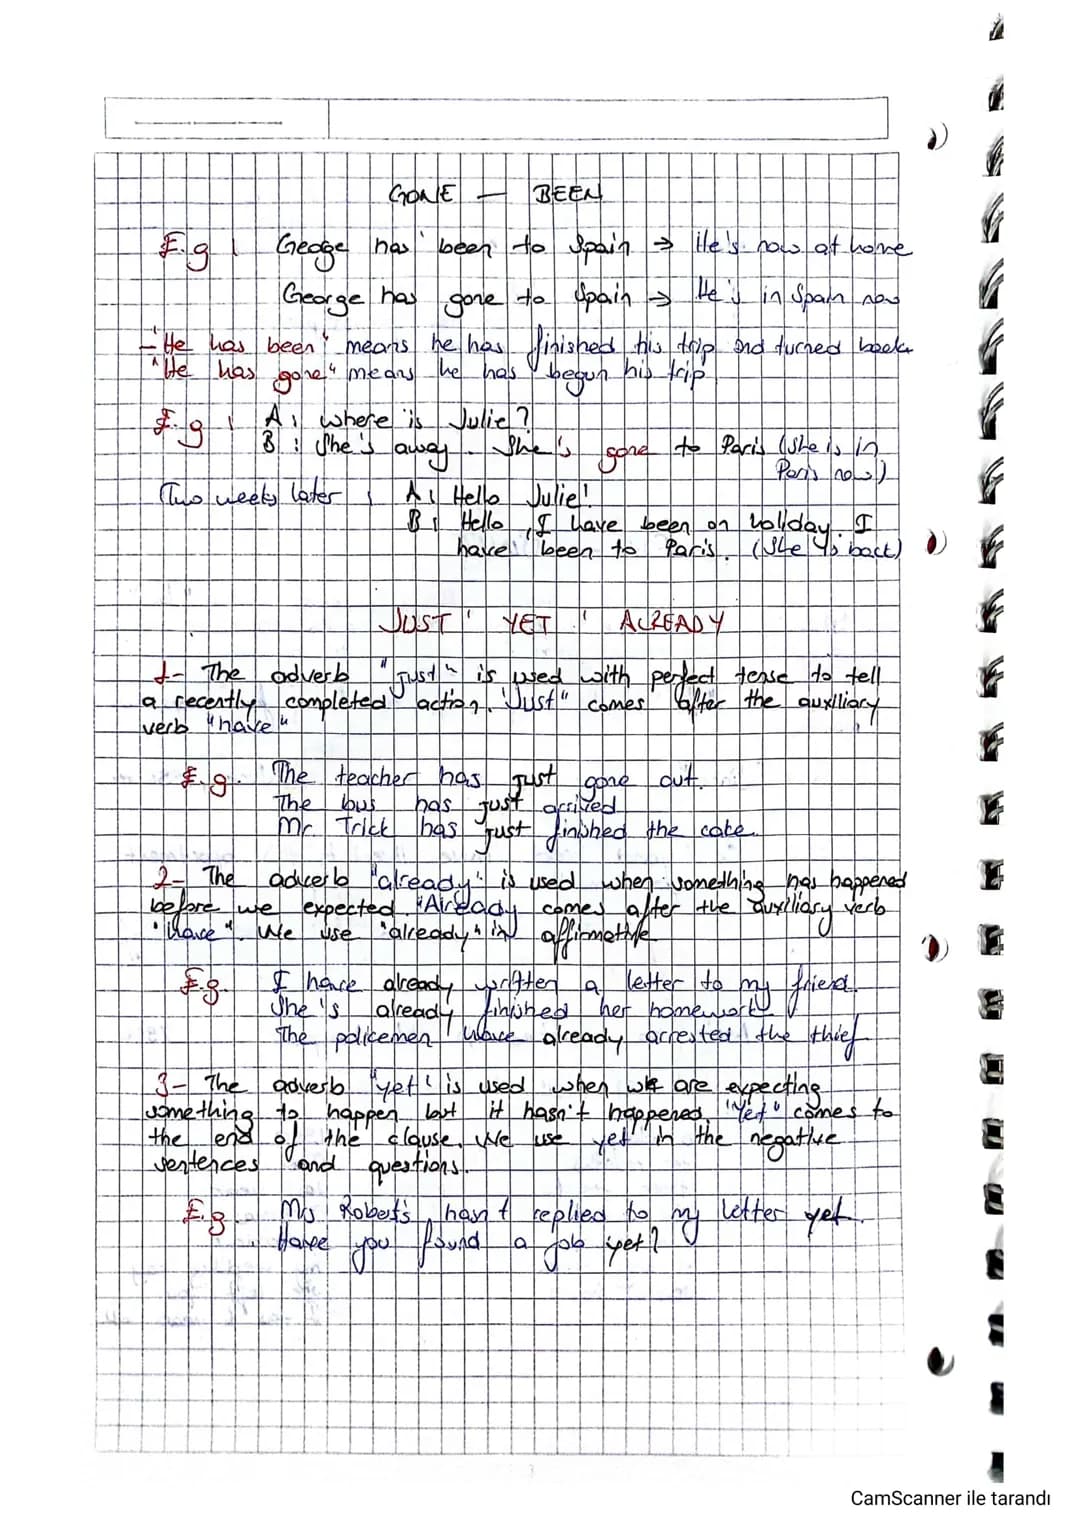 GONE — BEEN
E.g : George has been to Spain → He's now at home
George has gone to Spain → He's in Spain now
- "He has been" means he has finished his trip and turned back
"He has gone" means he has begun his trip
E.g : A: where is Julie?
B: She's away. She's gone to Paris (she is in
Paris now)
(Two weeks later : A: Hello Julie!
B: Hello, I have been on holiday. I
have been to Paris. (She is back)
JUST ' YET ' ALREADY
1- The adverb "just" is used with perfect tense to tell
a recently completed action. "Just" comes after the auxiliary
verb "have"
E.g. The teacher has just gone out.
The bus has just arrived
Mr. Trick has just finished the cake.
2- The adverb "already" is used when something has happened
before we expected. "Already comes after the auxiliary verb
"have". We use "already" in affirmative
E.g. I have already written a letter to my friend.
She's already finished her homework
The policemen have already arrested the thief
3- The adverb "yet" is used when we are expecting
something to happen but it hasn't happened. "Yet" comes to
the end of the clause. We use yet in the negative
sentences and questions.
E.g. Mrs Roberts hasn't replied to my letter yet.
Have you found a job yet?
CamScanner ile tarandı